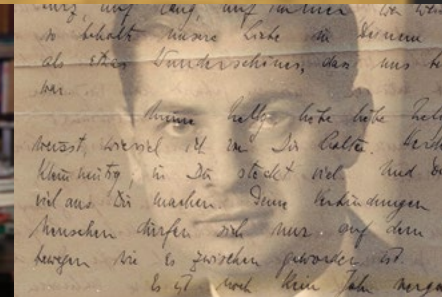 kurz auf lang, auf immer
so behalt unsere Liebe in Deinem
als etwas Wunderschönes, das uns
war.
Meine Helly liebe liebe
weisst, wieviel ich von Dir halte.
kleinmütig, in Dir steckt viel. Und
viel aus Dir machen. Deine Verbindungen
Menschen dürfen sich nur auf dem
bewegen wie es zwischen geworden ist.
Es ist noch kein Jahr